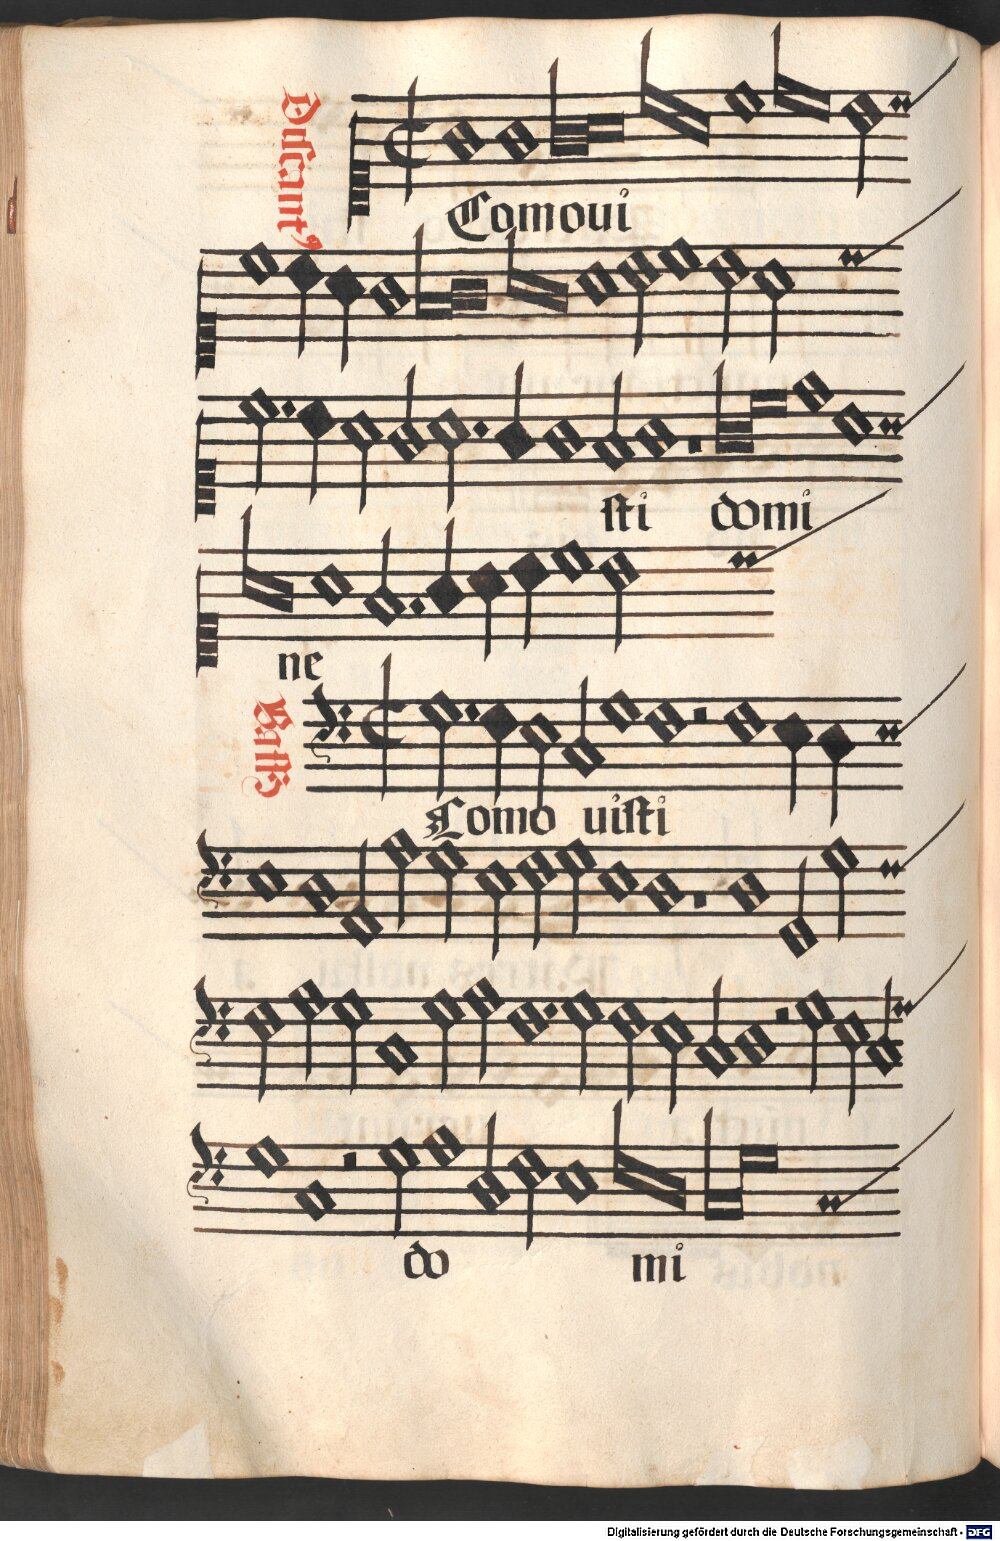 Discant9
Comoui
sti domi
ne
Bassus
Como uisti
do mi
Digitalisierung gefördert durch die Deutsche Forschungsgemeinschaft - DFG